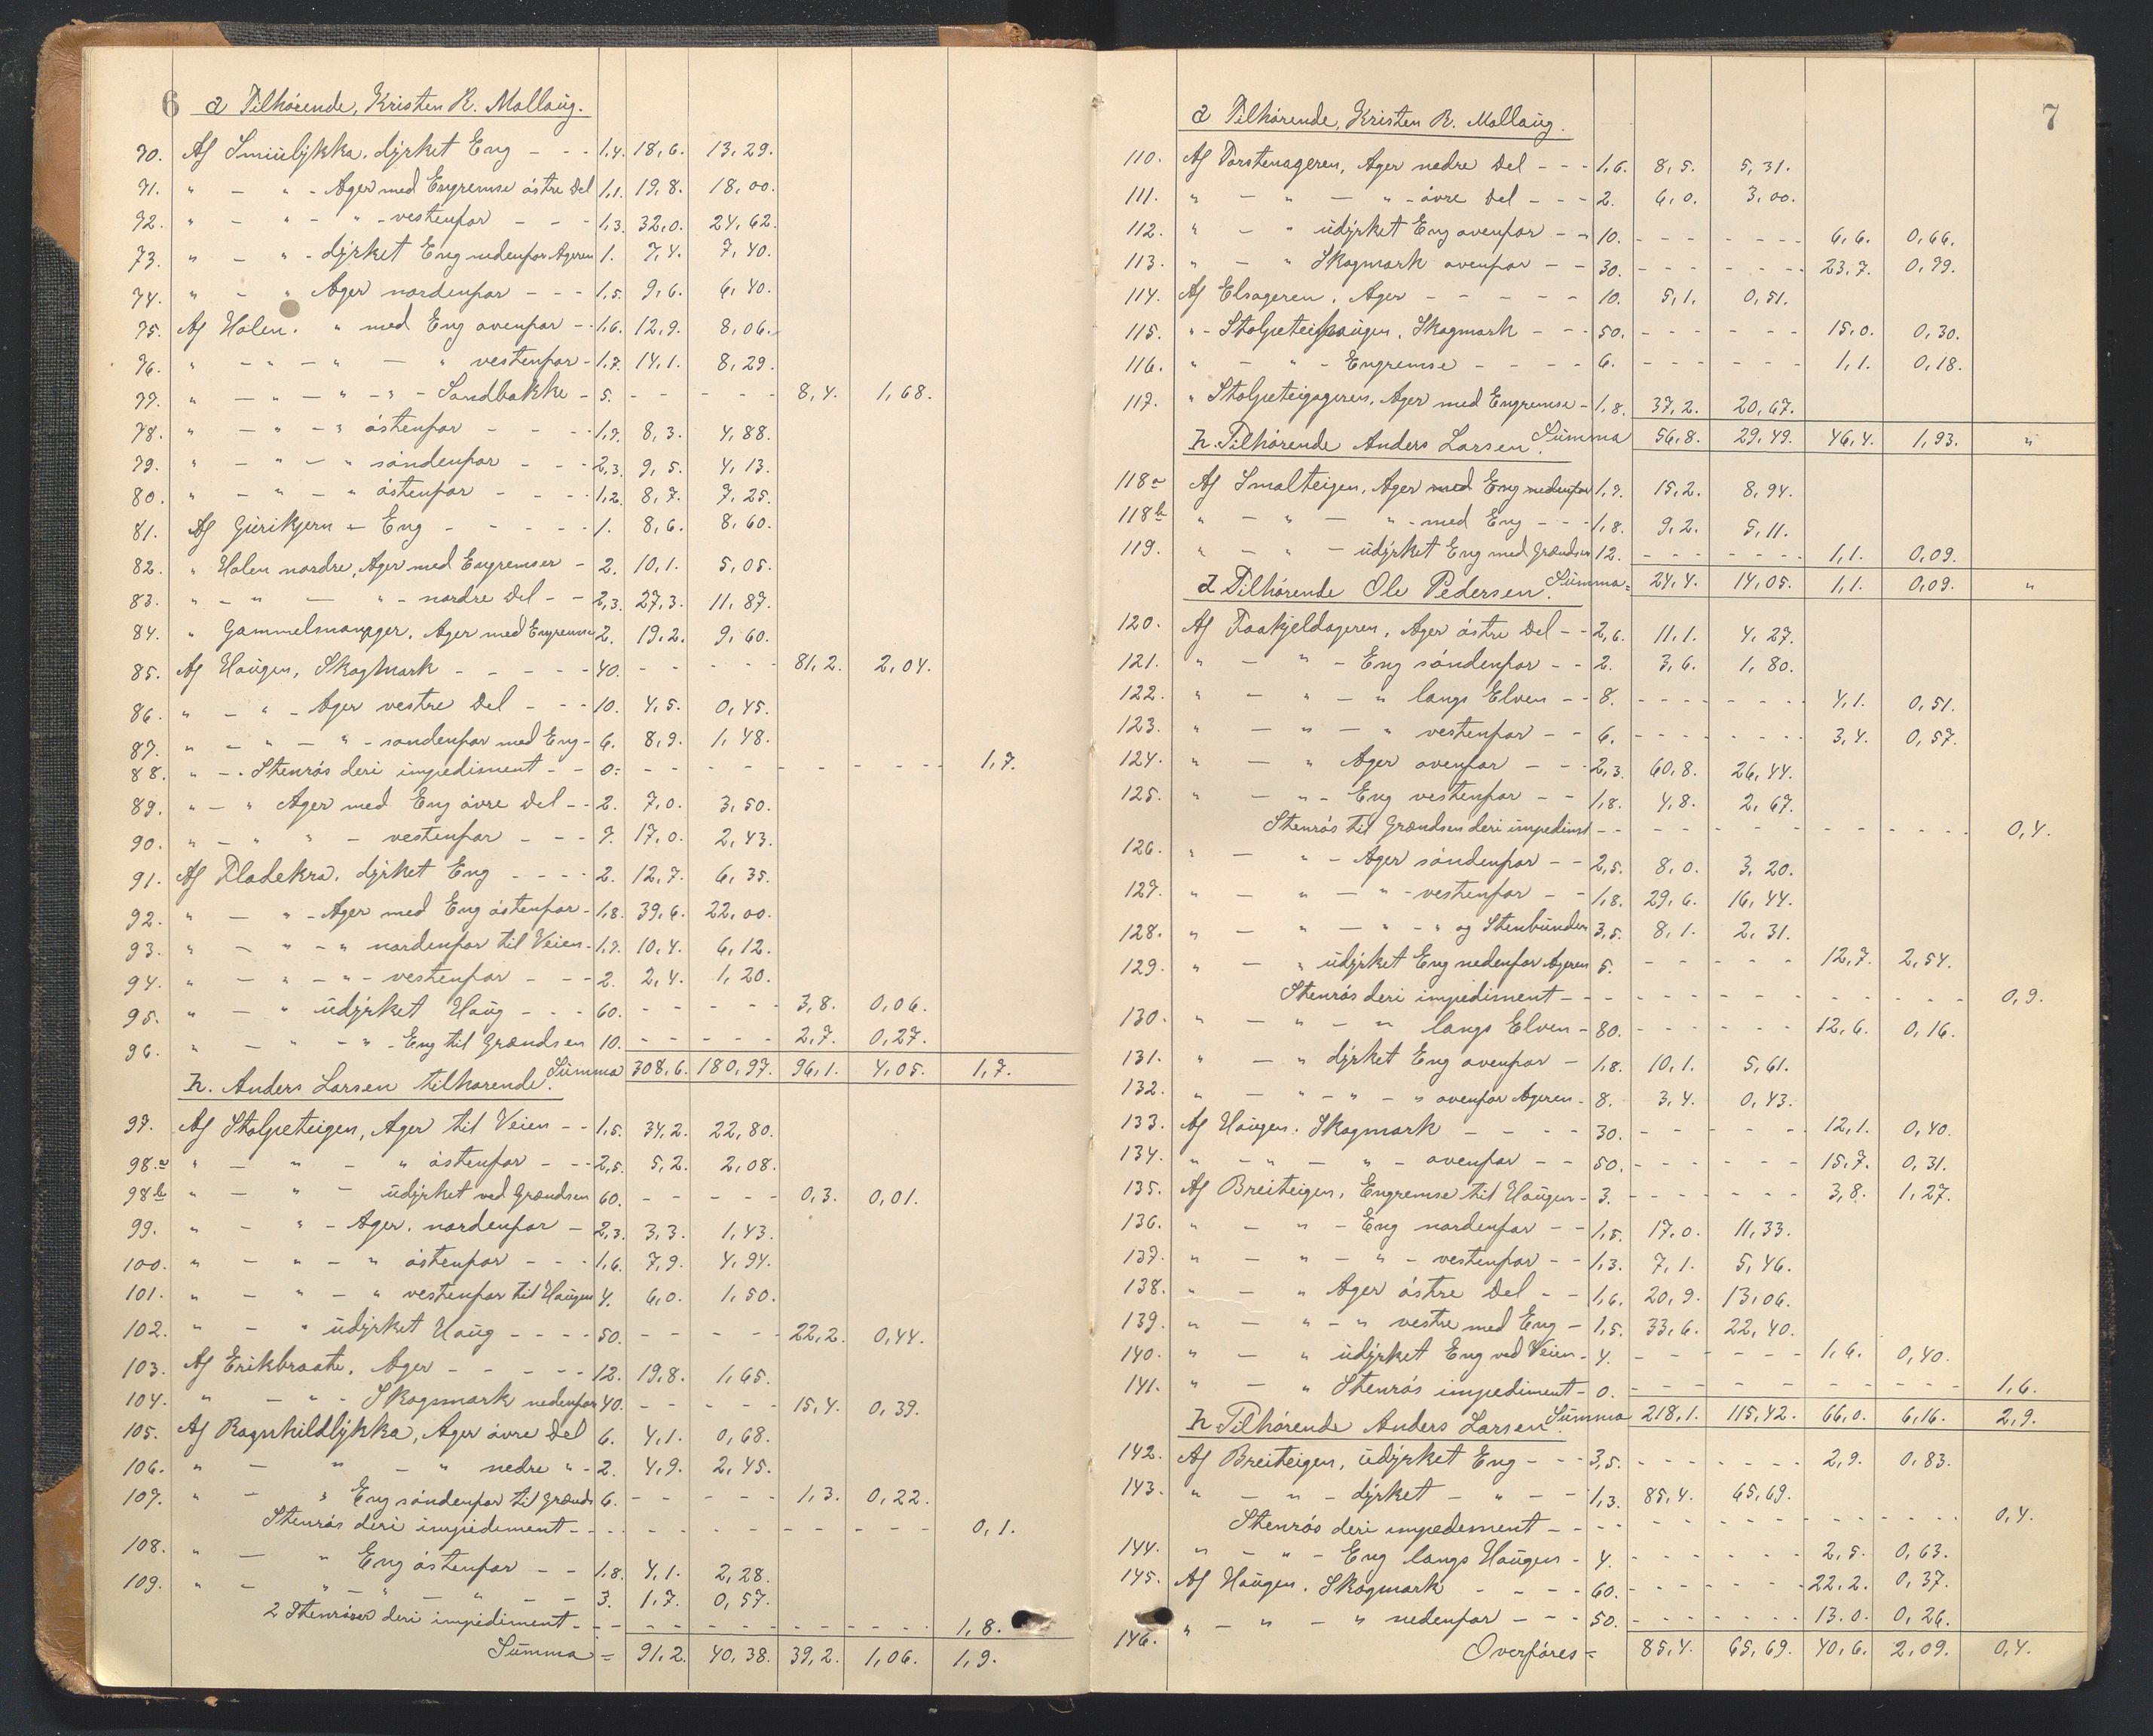 6 a Tilhørende, Kristen R. Mollaug.
70. Af Smiulykka, dyrket Eng - - - 1,4. 18,6. 13,29.
71. " — " - Ager med Engremse østre Del 1,1. 19,8. 18,00.
72. " — " - " - vestenfor - - - 1,3. 32,0. 24,62.
73. " — " - dyrket Eng nedenfor Ageren 1. 7,4. 7,40.
74. " — " Ager nordenfor - - - 1,5. 9,6. 6,40.
75. Af Holen. " med Eng ovenfor - - 1,6. 12,9. 8,06.
76. " — " — " — " vestenfor - 1,7. 14,1. 8,29.
77. " — " — " - " - Sandbakke - 5. - - - - - 8,4. 1,68.
78. " — " — " østenfor - - - - 1,7. 8,3. 4,88.
79. " — " — " søndenfor - - - 2,3. 9,5. 4,13.
80. " — " — " østenfor - - - - 1,2. 8,7. 7,25.
81. Af Gurikjern - Eng - - - - - 1. 8,6. 8,60.
82. " Holen nordre, Ager med Engremser - 2. 10,1. 5,05.
83. " — " — " - nordre Del - - 2,3. 27,3. 11,87.
84. " Gammelsmanager, Ager med Engremse 2. 19,2. 9,60.
85. Af Haugen, Skogmark - - - - - 40. - - - - - 81,2. 2,04.
86. " — " - Ager vestre Del - - - 10. 4,5. 0,45.
87. " — " — " - søndenfor med Eng - 6. 8,9. 1,48.
88. " - " Stenrøs deri impediment - - 0. - - - - - - - - - 1,7.
89. " — " Ager med Eng øvre Del - - 2. 7,0. 3,50.
90. " — " " - vestenfor - - - 7. 17,0. 2,43.
91. Af Pladekra, dyrket Eng - - - - 2. 12,7. 6,35.
92. " — " - Ager med Eng østenfor - 1,8. 39,6. 22,00.
93. " — " - " nordenfor til Veien - 1,7. 10,4. 6,12.
94. " — " - " - vestenfor - - - 2. 2,4. 1,20.
95. " — " udyrket Haug - - - 60. - - - - 3,8. 0,06.
96. " — " - " - Eng til Grændsen 10. - - - - - 2,7. 0,27.
Summa 308,6. 180,97. 96,1. 4,05. 1,7.
h. Anders Larsen tilhørende.
97. Af Stolpeteigen, Ager til Veien - - 1,5. 34,2. 22,80.
98.a " — " — " østenfor - - - 2,5. 5,2. 2,08.
98b " — " — udyrket ved Grændsen 60. - - - - - 0,3. 0,01.
99. " — " - Ager. nordenfor - 2,3. 3,3. 1,43.
100. " — " — " østenfor - - - 1,6. 7,9. 4,94.
101. " — " — " vestenfor til Haugen 4. 6,0. 1,50.
102. " — " udyrket Haug - - - - 50. - - - - - 22,2. 0,44.
103. Af Erikbraate, Ager - - - - - 12. 19,8. 1,65.
104. " — " - Skogsmark nedenfor 40. - - - - - 15,4. 0,39.
105. Af Ragnhildlykka, Ager øvre Del 6. 4,1. 0,68.
106. " — " — " nedre " - 2. 4,9. 2,45.
107. " — " Eng søndenfor til Grænds 6. - - - - - 1,3. 0,22.
Stenrøs deri impediment - - - - - - - - - - 0,1.
108. " — " Eng østenfor - - 1,8. 4,1. 2,28.
109. " — " — " — " — - 3. 1,7. 0,57.
2 Stenrøser deri impediment - - - - - - - - - - 1,8.
Summa = 91,2. 40,38. 39,2. 1,06. 1,9.
7
a Tilhørende, Kristen R. Mollaug.
110. Af Torstenageren, Ager nedre Del - - - 1,6. 8,5. 5,31.
111. " — " — " - øvre Del - - - 2. 6,0. 3,00.
112. " — " udyrket Eng ovenfor - - 10. - - - - - - 6,6. 0,66.
113. " — " Skogmark ovenfor - - 30. - - - - - - 23,7. 0,79.
114. Af Elsageren, Ager - - - - - 10. 5,1. 0,51.
115. " - Stolpeteighaugen, Skogmark - - - 50. - - - - - - 15,0. 0,30.
116. " — " - Engremse - - - - 6. - - - - - - 1,1. 0,18.
117. " Stolpeteigageren, Ager med Engremse - 1,8. 37,2. 20,67.
Summa 56,8. 29,49. 46,4. 1,93. "
h. Tilhørende Anders Larsen.
118a Af Smalteigen, Ager med Eng nedenfor 1,7. 15,2. 8,94.
118b " — " — " - med Eng - - - 1,8. 9,2. 5,11.
119. " — " — udyrket Eng med Grændsen 12. - - - - - - 1,1. 0,09.
Summa = 24,4. 14,05. 1,1. 0,09. "
a Tilhørende Ole Pedersen.
120. Af Taakjeldageren, Ager østre Del - - 2,6. 11,1. 4,27.
121. " — " - Eng søndenfor - - 2. 3,6. 1,80.
122. " — " — " langs Elven - - 8. - - - - - - 4,1. 0,51.
123. " — " — " vestenfor - - 6. - - - - - - 3,4. 0,57.
124. " — " Ager ovenfor - - - 2,3. 60,8. 26,44.
125. " — " - Eng vestenfor - - 1,8. 4,8. 2,67.
Stenrøs til Grændsen deri impedimt - - - - - - - - - - 0,4.
126. " — " - Ager søndenfor - - 2,5. 8,0. 3,20.
127. " — " — " - vestenfor - - 1,8. 29,6. 16,44.
128. " — " — " - " og Stenbunden 3,5. 8,1. 2,31.
129. " — " udyrket Eng nedenfor Ageren 5. - - - - - 12,7. 2,54.
Stenrøs deri impediment - - - - - - - - - - 0,9.
130. " — " — " langs Elven - 80. - - - - - - 12,6. 0,16.
131. " — " dyrket Eng ovenfor - 1,8. 10,1. 5,61.
132. " — " - " - " ovenfor Ageren - 8. 3,4. 0,43.
133. Af Haugen. Skogmark - - - - 30. - - - - - 12,1. 0,40.
134. " — " — " - ovenfor - - 50. - - - - - 15,7. 0,31.
135. Af Breiteigen, Engremse til Haugen - 3. - - - - - - 3,8. 1,27.
136. " — " - Eng nordenfor - - 1,5. 17,0. 11,33.
137. " — " — " - vestenfor - - 1,3. 7,1. 5,46.
138. " — " Ager østre Del - - 1,6. 20,9. 13,06.
139. " — " - " vestre med Eng - 1,5. 33,6. 22,40.
140. " — " udyrket Eng ved Veien - 4. - - - - - - 1,6. 0,40.
141. " — " Stenrøs impediment - 0. - - - - - - - - - 1,6.
Summa 218,1. 115,42. 66,0. 6,16. 2,9.
h Tilhørende Anders Larsen.
142. Af Breiteigen, udyrket Eng - - - 3,5. - - - - - - 2,9. 0,83.
143. " — " - dyrket - " - - 1,3. 85,4. 65,69.
Stenrøs deri impediment - - - - - - - - - - 0,4.
144. " — " - Eng langs Haugen - 4. - - - - - - 2,5. 0,63.
145. Af Haugen. Skogmark - - - - 60. - - - - - - 22,2. 0,37.
146. " — " — " nedenfor - - - 50. - - - - - - 13,0. 0,26.
Overføres = 85,4. 65,69. 40,6. 2,09. 0,4.